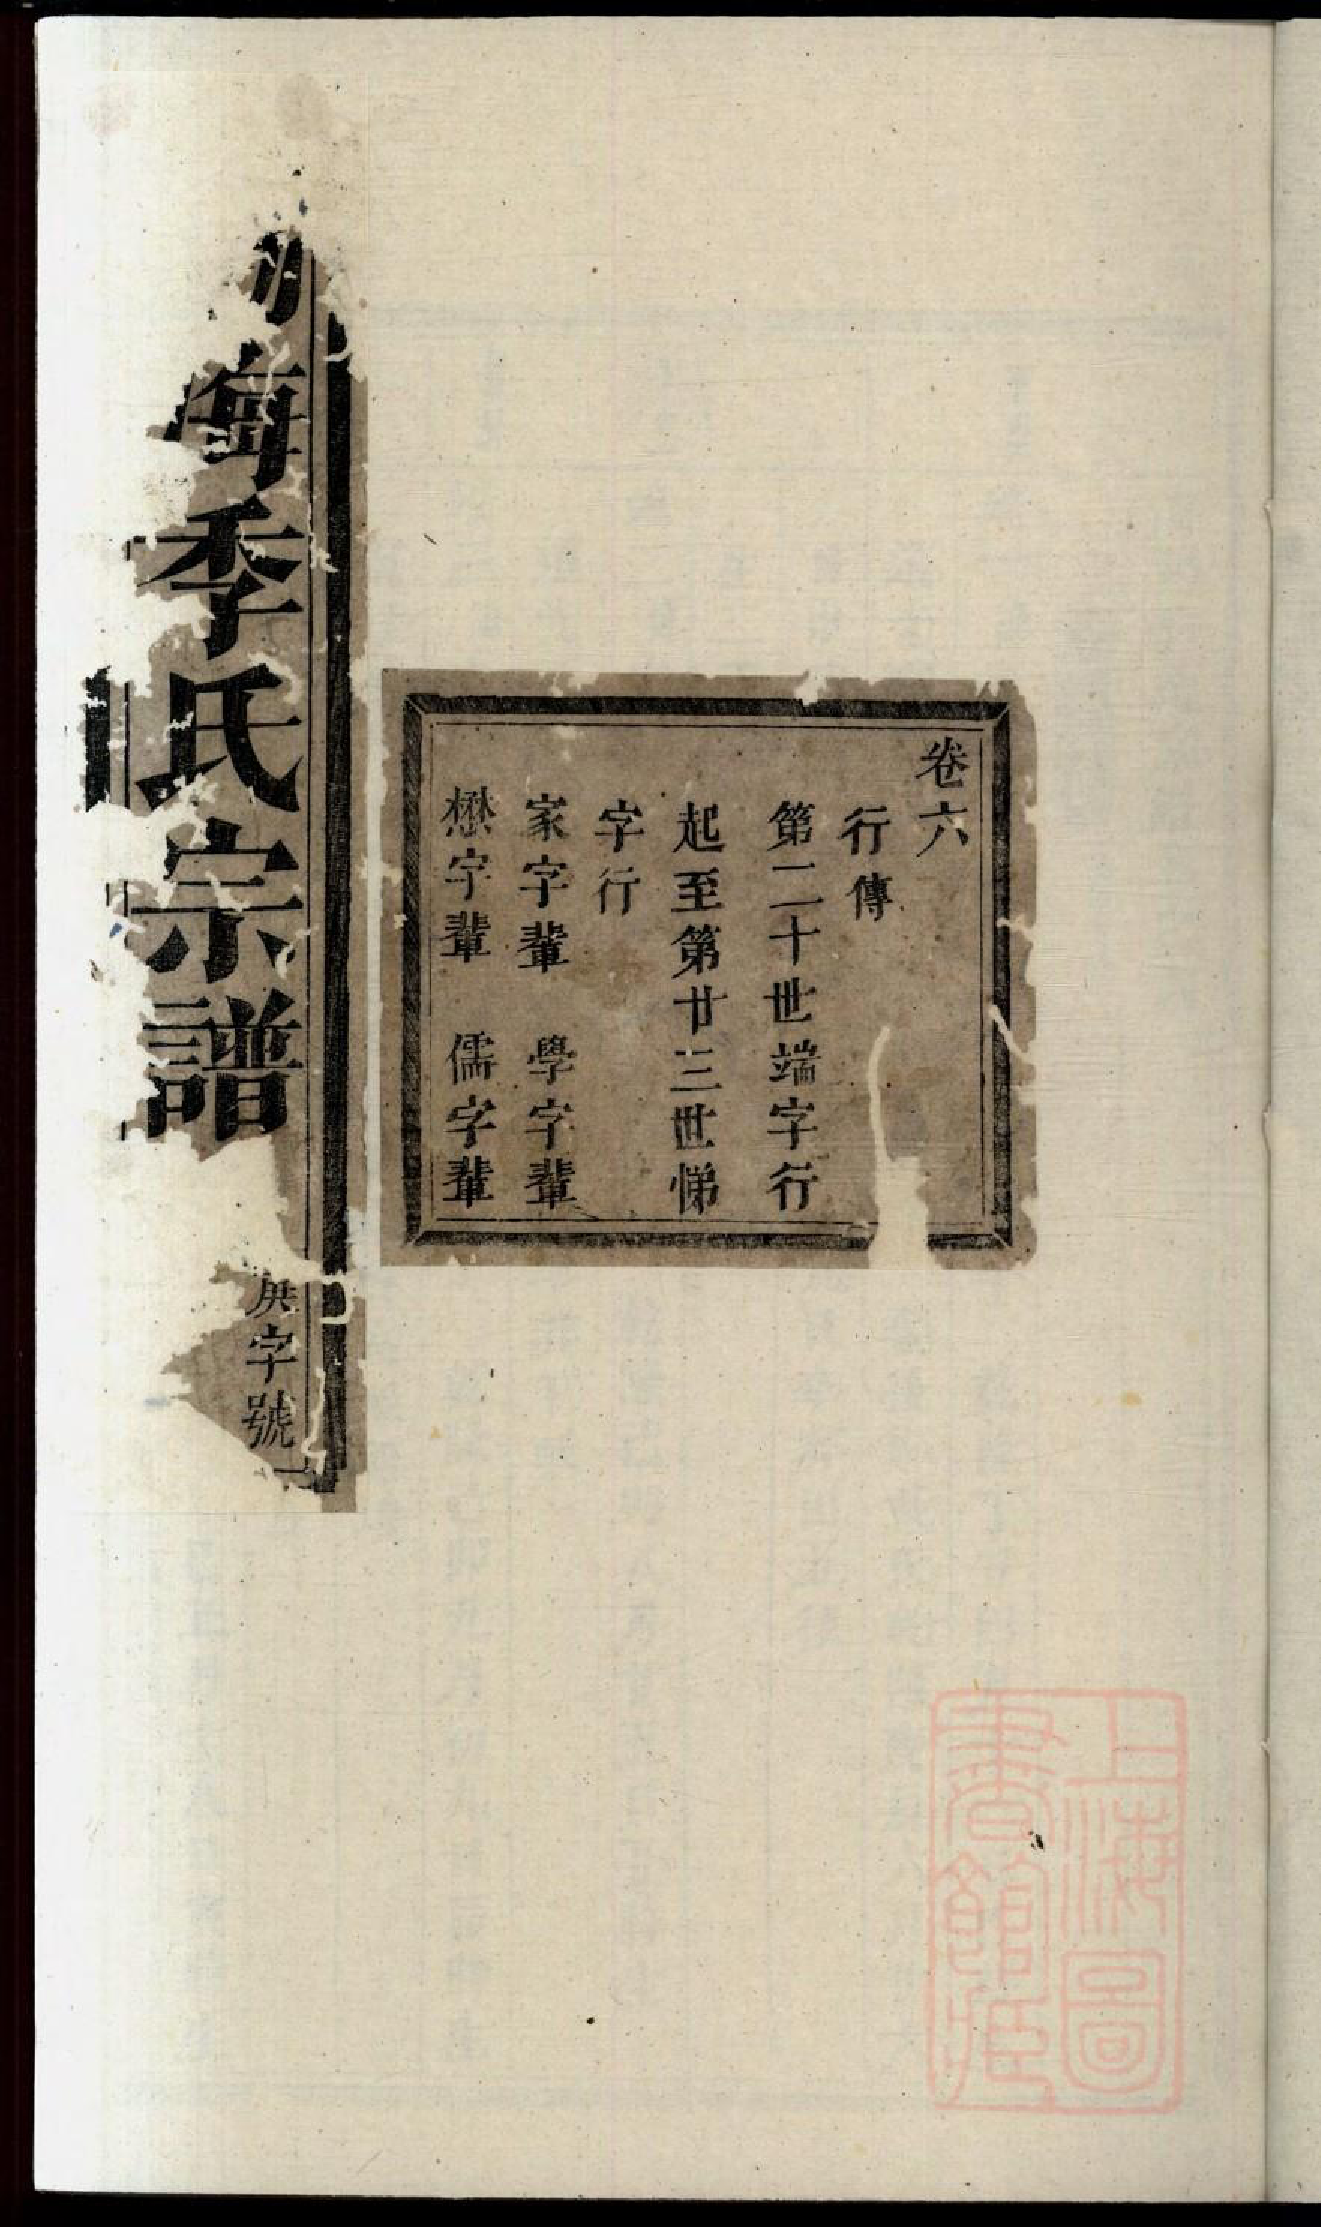 卷六
行傳
第二十世端字行
起至第廿三世悌
字行
家字輩　學字輩
懋字輩　儒字輩
海季氏宗譜
字號
上海圖
書館藏